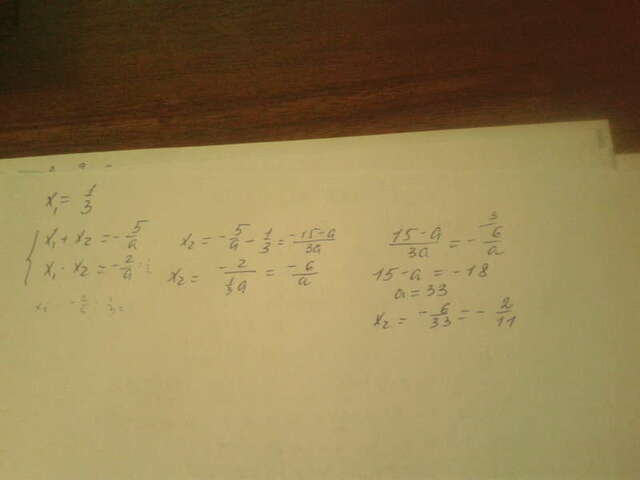 x₁ = 1/3
{ x₁ + x₂ = -5/a
x₁ · x₂ = -2/a
x₂ = -5/a - 1/3 = -15-a/3a
x₂ = -2/(1/3 a) = -6/a
15-a/3a = -6/a
15-a = -18
a = 33
x₂ = -6/33 = -2/11